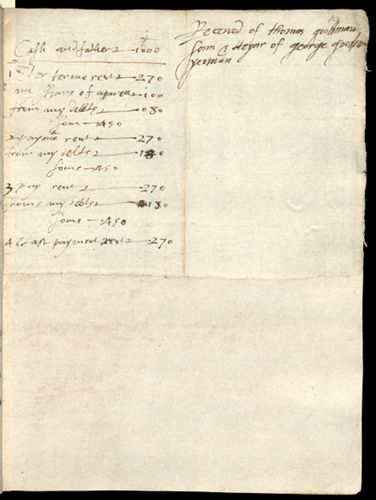 Cash and father 1000
terme rent 270
of 100
from my debts 080
Some 450
2 payme rent 270
from my debts 180
Some 450
3 pay rent 270
frome my debts 180
Some 450
4 Last payment rent 270
Receved of thomas goodman
sonn & of george
yeoman